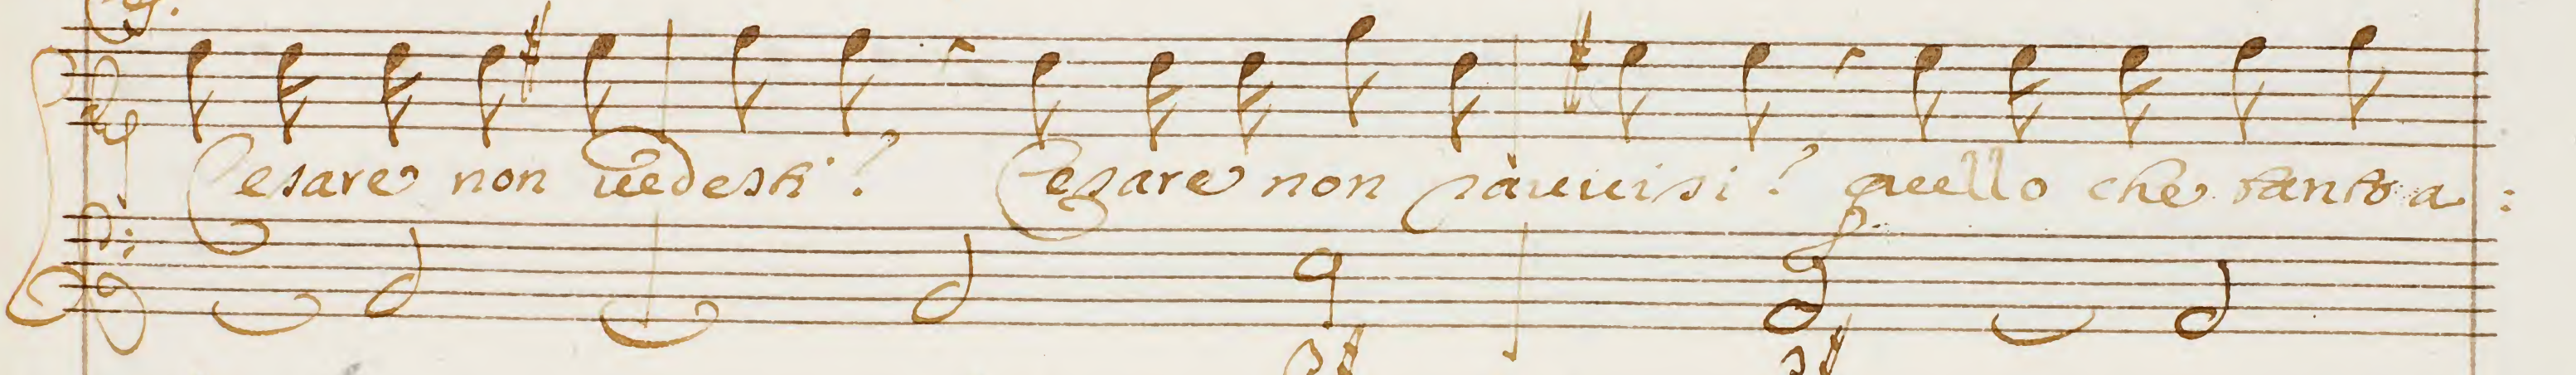 Cesare non uedesti? Cesare non rauuisi? quello che tanto a: